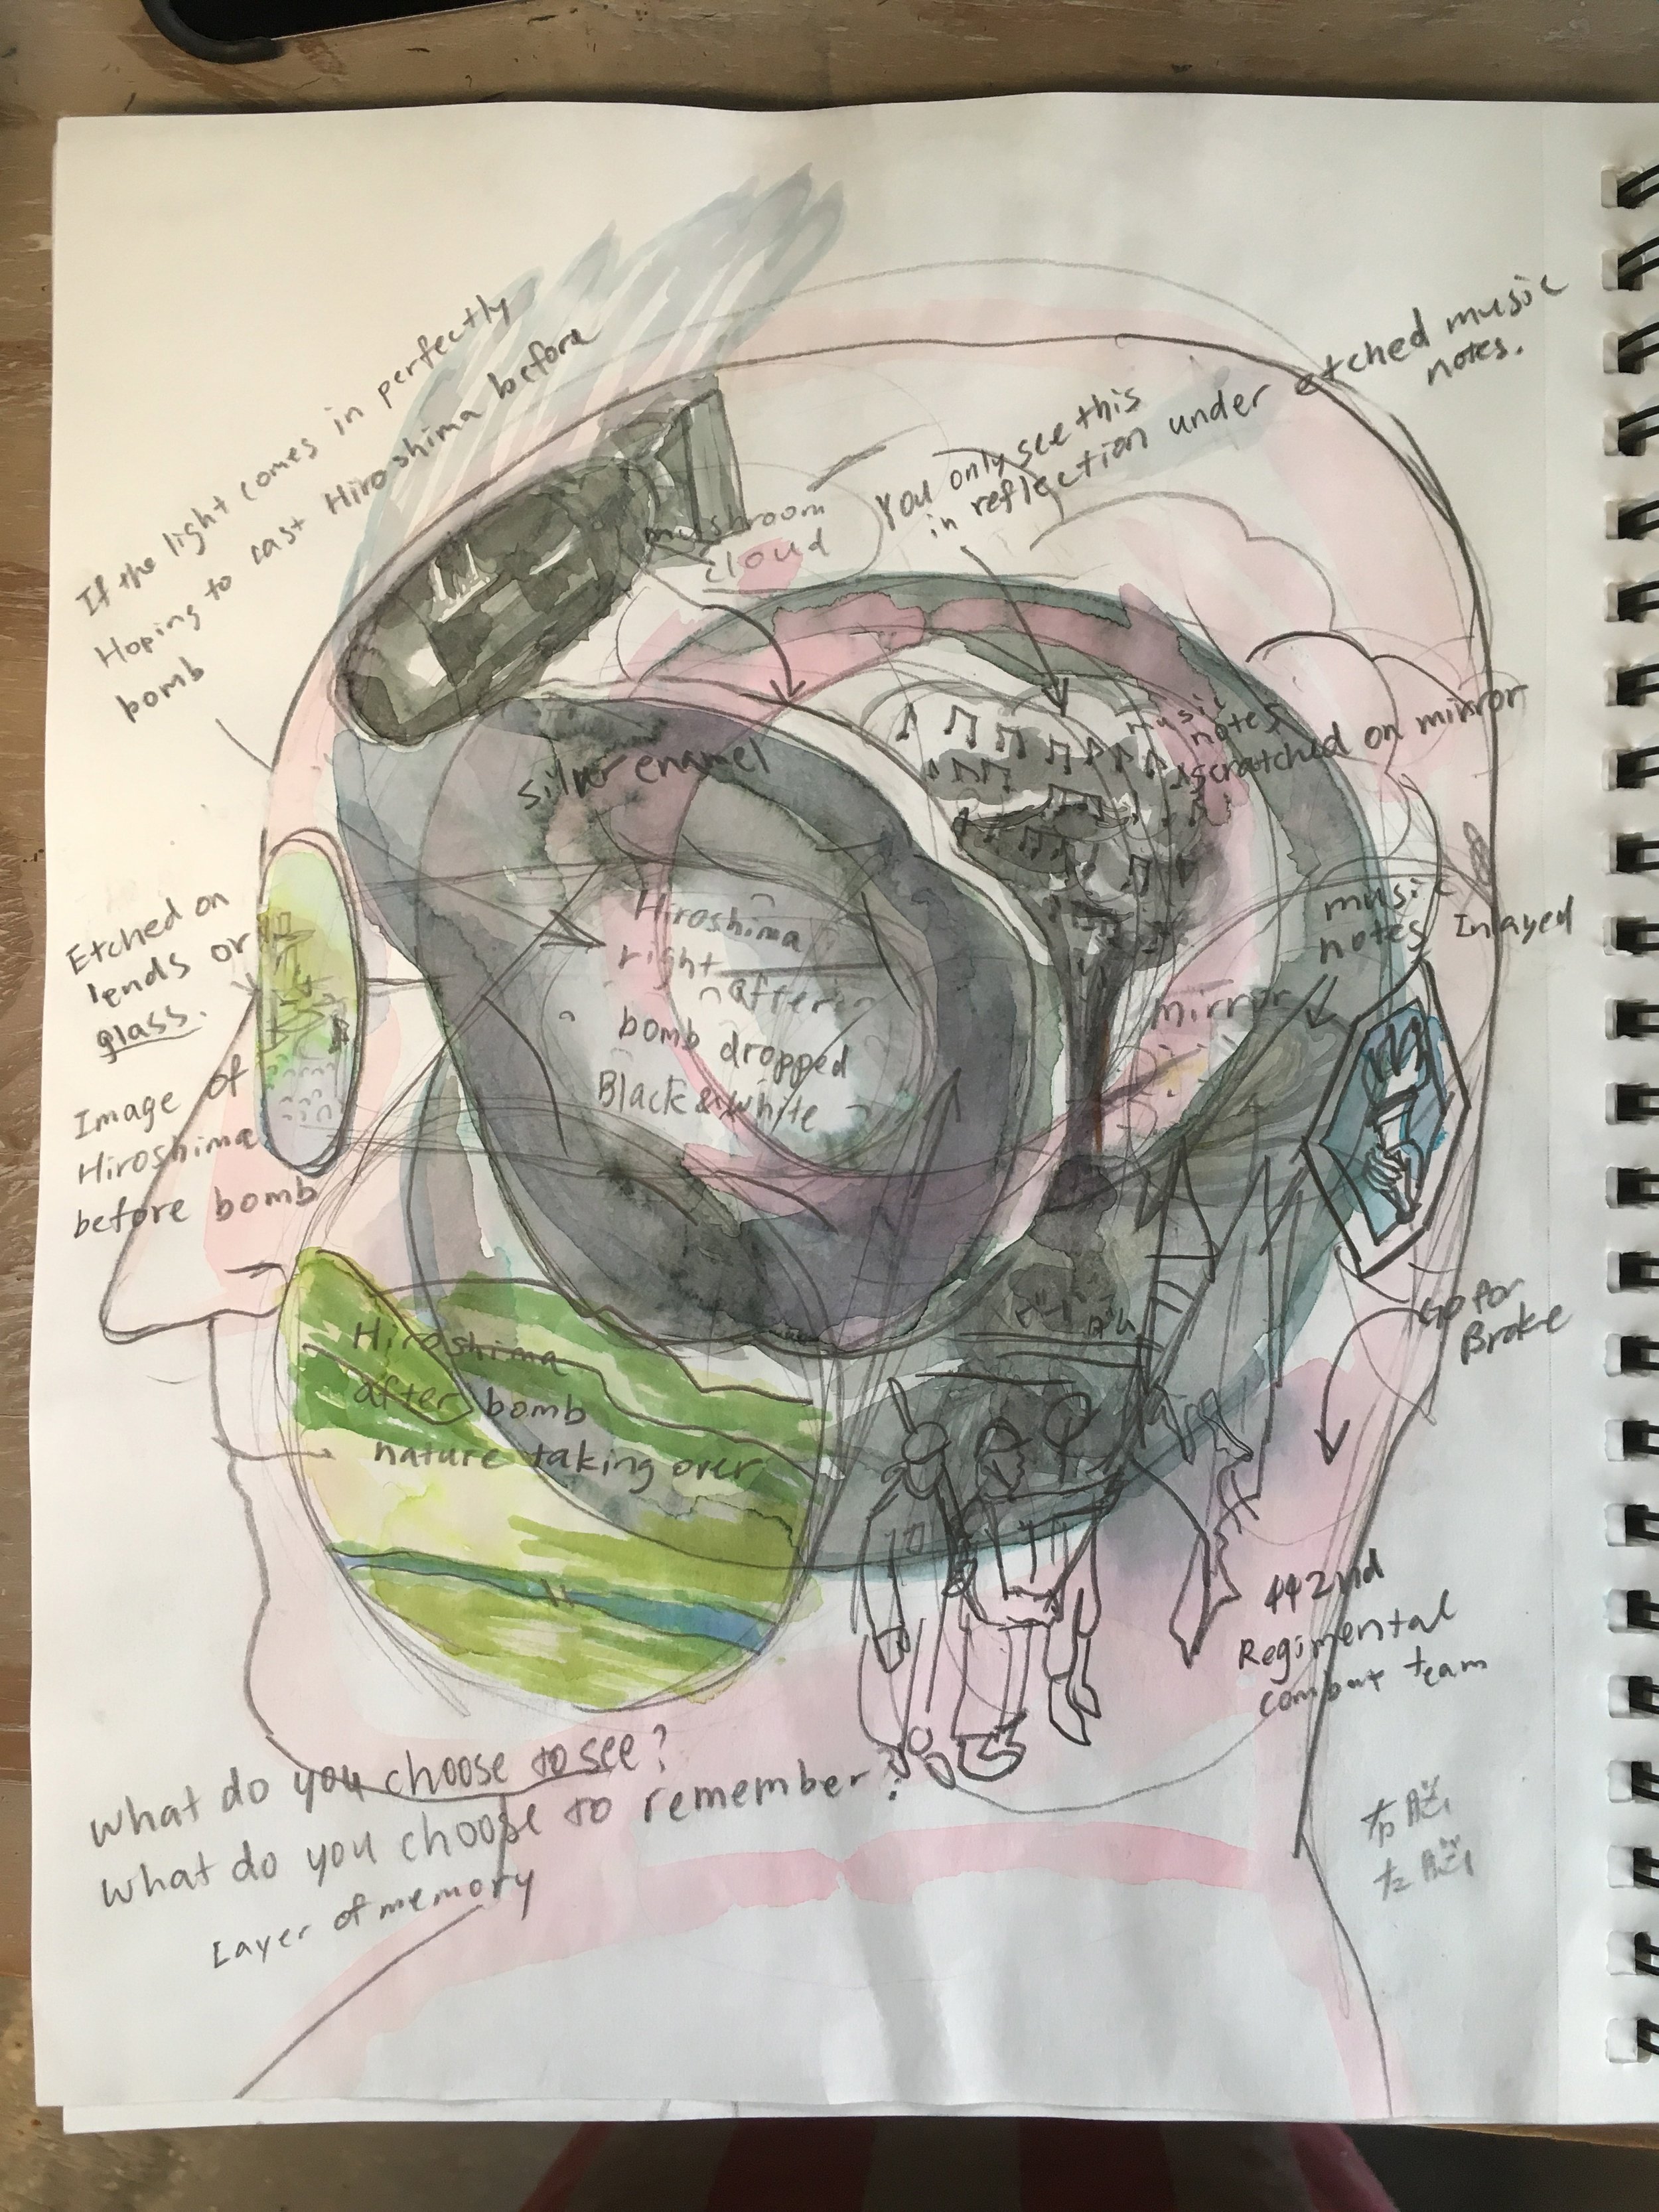 If the light comes in perfectly
Hoping to cast Hiroshima before
bomb
mushroom
cloud
You only see this
in reflection under etched music
notes.
silver enamel
music
notes
scratched on mirror
Etched on
lends or
glass.
Image of
Hiroshima
before bomb
Hiroshima
right after
bomb dropped
Black & white
mirror
music
notes Inlayed
Go for
Broke
Hiroshima
after bomb
nature taking over
442nd
Regimental
combat team
What do you choose to see?
What do you choose to remember?
Layer of memory
右脳
左脳